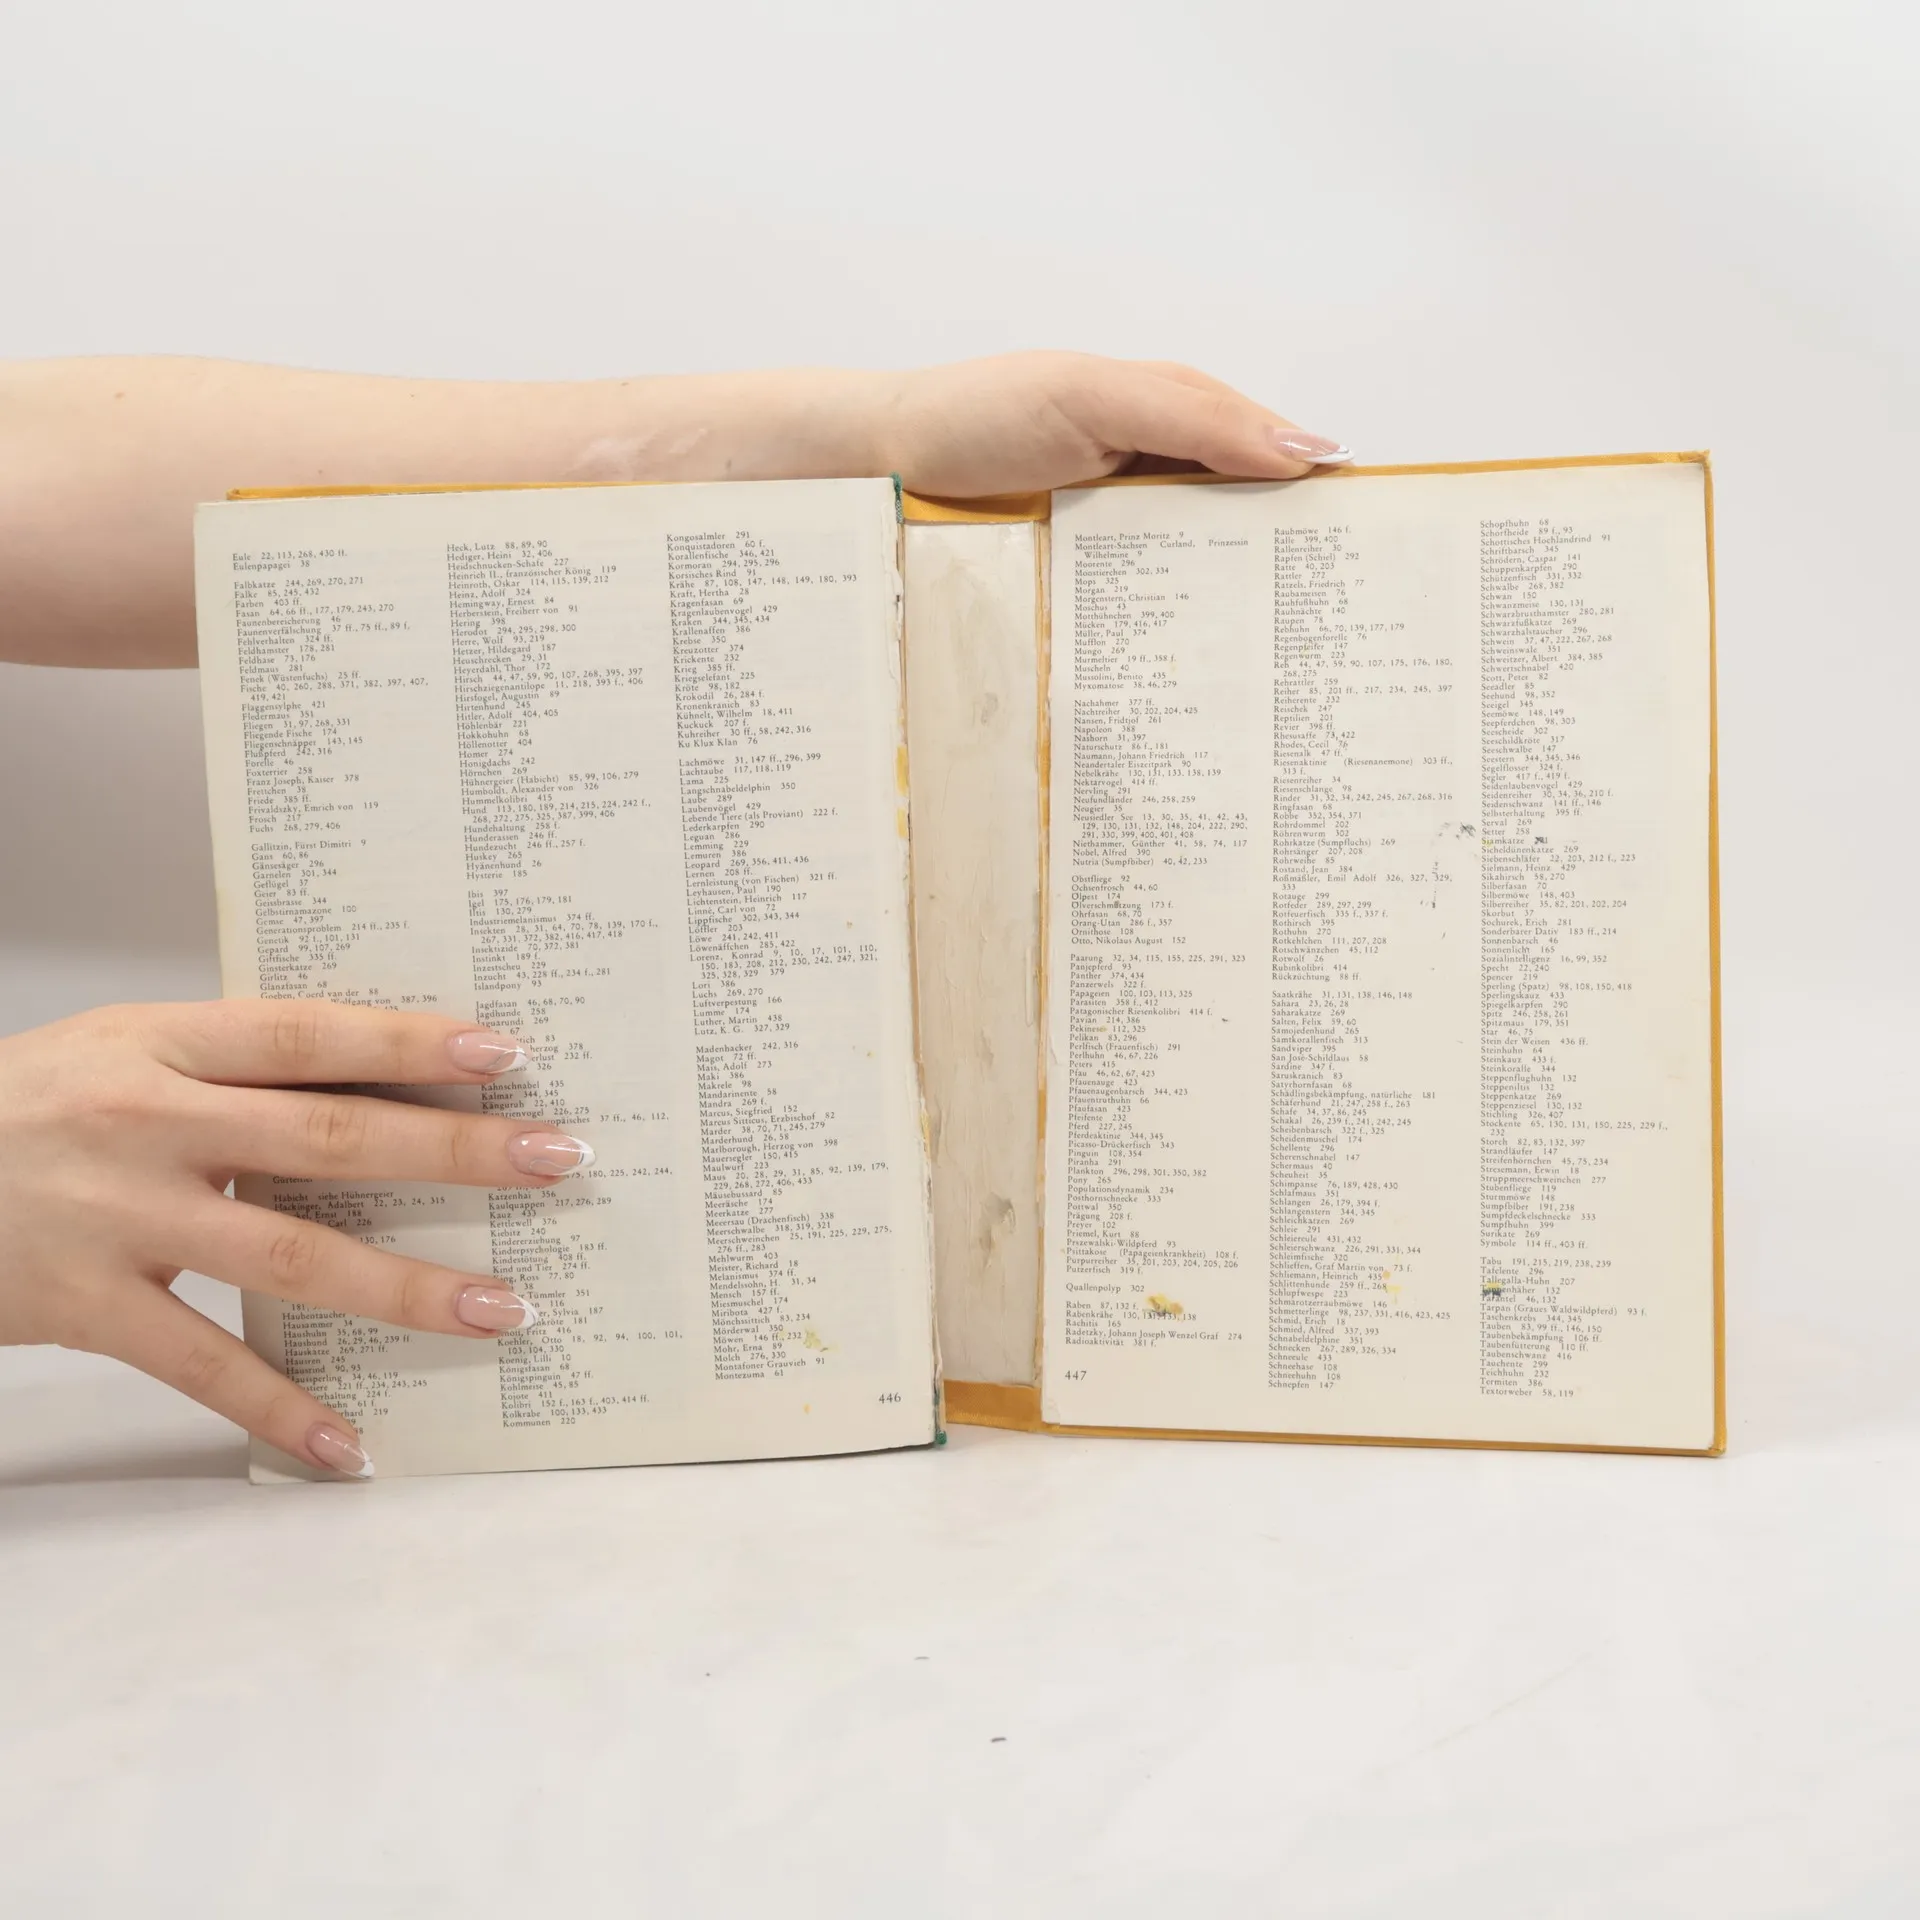 Eule 22, 113, 268, 430 ff.
Eulenpapagei 38
Falbkatze 244, 269, 270, 271
Falke 85, 245, 432
Farben 403 ff.
Fasan 64, 66 ff., 177, 179, 243, 270
Faunenbereicherung 46
Faunenverfälschung 37 ff., 75 ff., 89 f.
Fehlverhalten 324 ff.
Feldhamster 178, 281
Feldhase 73, 176
Feldmaus 281
Fenek (Wüstenfuchs) 25 ff.
Fische 40, 260, 288, 371, 382, 397, 407,
419, 421
Flaggensylphe 421
Fledermaus 351
Fliegen 31, 97, 268, 331
Fliegende Fische 174
Fliegenschnäpper 143, 145
Flußpferd 242, 316
Forelle 46
Foxterrier 258
Franz Joseph, Kaiser 378
Frettchen 38
Friede 385 ff.
Frivaldzky, Emrich von 119
Frosch 217
Fuchs 268, 279, 406
Gallitzin, Fürst Dimitri 9
Gans 60, 86
Gänsesäger 296
Garnelen 301, 344
Geflügel 37
Geier 83 ff.
Geissbrasse 344
Gelbstirnamazone 100
Gemse 47, 397
Generationsproblem 214 ff., 235 f.
Genetik 92 f., 101, 131
Gepard 99, 107, 269
Giftfische 335 ff.
Ginsterkatze 269
Girlitz 46
Glanzfasan 68
Goeben, Coerd van der 88
Wolfgang von 387, 396
Habicht siehe Hühnergeier
Hackinger, Adalbert 22, 23, 24, 315
Ernst 188
Carl 226
130, 176
Haubentaucher
Hausammer 34
Haushuhn 35, 68, 99
Haushund 26, 29, 46, 239 ff.
Hauskatze 269, 271 ff.
Hausren 245
Hausrind 90, 93
Haussperling 34, 46, 119
221 ff., 234, 243, 245
224 f.
61 f.
219
Heck, Lutz 88, 89, 90
Hediger, Heini 32, 406
Heidschnucken-Schafe 227
Heinrich II., französischer König 119
Heinroth, Oskar 114, 115, 139, 212
Heinz, Adolf 324
Hemingway, Ernest 84
Herberstein, Freiherr von 91
Hering 398
Herodot 294, 295, 298, 300
Herre, Wolf 93, 219
Hetzer, Hildegard 187
Heuschrecken 29, 31
Heyerdahl, Thor 172
Hirsch 44, 47, 59, 90, 107, 268, 395, 397
Hirschziegenantilope 11, 218, 393 f., 406
Hirsfogel, Augustin 89
Hirtenhund 245
Hitler, Adolf 404, 405
Höhlenbär 221
Hokkohuhn 68
Höllenotter 404
Homer 274
Honigdachs 242
Hörnchen 269
Hühnergeier (Habicht) 85, 99, 106, 279
Humboldt, Alexander von 326
Hummelkolibri 415
Hund 113, 180, 189, 214, 215, 224, 242 f.,
268, 272, 275, 325, 387, 399, 406
Hundehaltung 258 f.
Hunderassen 246 ff.
Hundezucht 246 ff., 257 f.
Huskey 265
Hyänenhund 26
Hysterie 185
Ibis 397
Igel 175, 176, 179, 181
Iltis 130, 279
Industriemelanismus 374 ff.
Insekten 28, 31, 64, 70, 78, 139, 170 f.,
267, 331, 372, 382, 416, 417, 418
Insektizide 70, 372, 381
Instinkt 189 f.
Inzestscheu 229
Inzucht 43, 228 ff., 234 f., 281
Islandpony 93
Jagdfasan 46, 68, 70, 90
Jagdhunde 258
Jaguarundi 269
67
83
378
232 ff.
326
Kahnschnabel 435
Kalmar 344, 345
Känguruh 22, 410
Kanarienvogel 226, 275
37 ff., 46, 112,
175, 180, 225, 242, 244,
Katzenhai 356
Kaulquappen 217, 276, 289
Kauz 433
Kettlewell 376
Kiebitz 240
Kindererziehung 97
Kinderpsychologie 183 ff.
Kindestötung 408 ff.
Kind und Tier 274 ff.
King, Ross 77, 80
38
Tümmler 351
116
Sylvia 187
181
Knott, Fritz 416
Koehler, Otto 18, 92, 94, 100, 101,
103, 104, 330
Koenig, Lilli 10
Königsfasan 68
Königspinguin 47 ff.
Kohlmeise 45, 85
Kojote 411
Kolibri 152 f., 163 f., 403, 414 ff.
Kolkrabe 100, 133, 433
Kommunen 220
Kongosalmler 291
Konquistadoren 60 f.
Korallenfische 346, 421
Kormoran 294, 295, 296
Korsisches Rind 91
Krähe 87, 108, 147, 148, 149, 180, 393
Kraft, Hertha 28
Kragenfasan 69
Kragenlaubenvogel 429
Kraken 344, 345, 434
Krallenaffen 386
Krebse 350
Kreuzotter 374
Krickente 232
Krieg 385 ff.
Kriegselefant 225
Kröte 98, 182
Krokodil 26, 284 f.
Kronenkranich 83
Kühnelt, Wilhelm 18, 411
Kuckuck 207 f.
Kuhreiher 30 ff., 58, 242, 316
Ku Klux Klan 76
Lachmöwe 31, 147 ff., 296, 399
Lachtaube 117, 118, 119
Lama 225
Langschnabeldelphin 350
Laube 289
Laubenvögel 429
Lebende Tiere (als Proviant) 222 f.
Lederkarpfen 290
Leguan 286
Lemming 229
Lemuren 386
Leopard 269, 356, 411, 436
Lernen 208 ff.
Lernleistung (von Fischen) 321 ff.
Leyhausen, Paul 190
Lichtenstein, Heinrich 117
Linné, Carl von 72
Lippfische 302, 343, 344
Löffler 203
Löwe 241, 242, 411
Löwenäffchen 285, 422
Lorenz, Konrad 9, 10, 17, 101, 110,
150, 183, 208, 212, 230, 242, 247, 321,
325, 328, 329 379
Lori 386
Luchs 269, 270
Luftverpestung 166
Lumme 174
Luther, Martin 438
Lutz, K. G. 327, 329
Madenhacker 242, 316
Magot 72 ff.
Mais, Adolf 273
Maki 386
Makrele 98
Mandarinente 58
Mandra 269 f.
Marcus, Siegfried 152
Marcus Sitticus, Erzbischof 82
Marder 38, 70, 71, 245, 279
Marderhund 26, 58
Marlborough, Herzog von 398
Mauersegler 150, 415
Maulwurf 223
Maus 20, 28, 29, 31, 85, 92, 139, 179,
229, 268, 272, 406, 433
Mäusebussard 85
Meeräsche 174
Meerkatze 277
Meersau (Drachenfisch) 338
Meerschwalbe 318, 319, 321
Meerschweinchen 25, 191, 225, 229, 275,
276 ff., 283
Mehlwurm 403
Meister, Richard 18
Melanismus 374 ff.
Mendelssohn, H. 31, 34
Mensch 157 ff.
Miesmuschel 174
Miribota 427 f.
Mönchssittich 83, 234
Mörderwal 350
Möwen 146 ff., 232
Mohr, Erna 89
Molch 276, 330
Montafoner Grauvieh 91
Montezuma 61
446
Montleart, Prinz Moritz 9
Montleart-Sachsen Curland, Prinzessin
Wilhelmine 9
Moorente 296
Moostierchen 302, 334
Mops 325
Morgan 219
Morgenstern, Christian 146
Moschus 43
Motthühnchen 399, 400
Mücken 179, 416, 417
Müller, Paul 374
Mufflon 270
Mungo 269
Murmeltier 19 ff., 358 f.
Muscheln 40
Mussolini, Benito 435
Myxomatose 38, 46, 279
Nachahmer 377 ff.
Nachtreiher 30, 202, 204, 425
Nansen, Fridtjof 261
Napoleon 388
Nashorn 31, 397
Naturschutz 86 f., 181
Naumann, Johann Friedrich 117
Neandertaler Eiszeitpark 90
Nebelkrähe 130, 131, 133, 138, 139
Nektarvogel 414 ff.
Nervling 291
Neufundländer 246, 258, 259
Neugier 35
Neusiedler See 13, 30, 35, 41, 42, 43,
129, 130, 131, 132, 148, 204, 222, 290,
291, 330, 399, 400, 401, 408
Niethammer, Günther 41, 58, 74, 117
Nobel, Alfred 390
Nutria (Sumpfbiber) 40, 42, 233
Obstfliege 92
Ochsenfrosch 44, 60
Ölpest 174
Ölverschmutzung 173 f.
Ohrfasan 68, 70
Orang-Utan 286 f., 357
Ornithose 108
Otto, Nikolaus August 152
Paarung 32, 34, 115, 155, 225, 291, 323
Panjepferd 93
Panther 374, 434
Panzerwels 322 f.
Papageien 100, 103, 113, 325
Parasiten 358 f., 412
Patagonischer Riesenkolibri 414 f.
Pavian 214, 386
Pekinese 112, 325
Pelikan 83, 296
Perlfisch (Frauenfisch) 291
Perlhuhn 46, 67, 226
Peters 415
Pfau 46, 62, 67, 423
Pfauenauge 423
Pfauenaugenbarsch 344, 423
Pfauentruthuhn 66
Pfaufasan 423
Pfeifente 232
Pferd 227, 245
Pferdeaktinie 344, 345
Picasso-Drückerfisch 343
Pinguin 108, 354
Piranha 291
Plankton 296, 298, 301, 350, 382
Pony 265
Populationsdynamik 234
Posthornschnecke 333
Pottwal 350
Prägung 208 f.
Preyer 102
Priemel, Kurt 88
Przewalski-Wildpferd 93
Psittakose (Papageienkrankheit) 108 f.
Purpurreiher 35, 201, 203, 204, 205, 206
Putzerfisch 319 f.
Quallenpolyp 302
Raben 87, 132 f.
Rabenkrähe 130, 131, 133, 138
Rachitis 165
Radetzky, Johann Joseph Wenzel Graf 274
Radioaktivität 381 f.
447
Raubmöwe 146 f.
Ralle 399, 400
Rallenreiher 30
Rapfen (Schiel) 292
Ratte 40, 203
Rattler 272
Ratzels, Friedrich 77
Raubameisen 76
Rauhfußhuhn 68
Rauhnächte 140
Raupen 78
Rebhuhn 66, 70, 139, 177, 179
Regenbogenforelle 76
Regenpfeifer 147
Regenwurm 223
Reh 44, 47, 59, 90, 107, 175, 176, 180,
268, 275
Rehrattler 259
Reiher 85, 201 ff., 217, 234, 245, 397
Reiherente 232
Reischek 247
Reptilien 201
Revier 398 ff.
Rhesusaffe 73, 422
Rhodes, Cecil 76
Riesenalk 47 ff.
Riesenaktinie (Riesenanemone) 303 ff.,
313 f.
Riesenreiher 34
Riesenschlange 98
Rinder 31, 32, 34, 242, 245, 267, 268, 316
Ringfasan 68
Robbe 352, 354, 371
Rohrdommel 202
Röhrenwurm 302
Rohrkatze (Sumpfluchs) 269
Rohrsänger 207, 208
Rohrweihe 85
Rostand, Jean 384
Roßmäßler, Emil Adolf 326, 327, 329,
333
Rotauge 299
Rotfeder 289, 297, 299
Rotfeuerfisch 335 f., 337 f.
Rothirsch 395
Rothuhn 270
Rotkehlchen 111, 207, 208
Rotschwänzchen 45, 112
Rotwolf 26
Rubinkolibri 414
Rückzüchtung 88 ff.
Saatkrähe 31, 131, 138, 146, 148
Sahara 23, 26, 28
Saharakatze 269
Salten, Felix 59, 60
Samojedenhund 265
Samtkorallenfisch 313
Sandviper 395
San José-Schildlaus 58
Sardine 347 f.
Saruskranich 83
Satyrhornfasan 68
Schädlingsbekämpfung, natürliche 181
Schäferhund 21, 247, 258 f., 263
Schafe 34, 37, 86, 245
Schakal 26, 239 f., 241, 242, 245
Scheibenbarsch 322 f., 325
Scheidenmuschel 174
Schellente 296
Scherenschnabel 147
Schermaus 40
Scheuheit 35
Schimpanse 76, 189, 428, 430
Schlafmaus 351
Schlangen 26, 179, 394 f.
Schlangenstern 344, 345
Schleichkatzen 269
Schleie 291
Schleiereule 431, 432
Schleierschwanz 226, 291, 331, 344
Schleimfische 320
Schlieffen, Graf Martin von 73 f.
Schliemann, Heinrich 435
Schlittenhunde 259 ff., 268
Schlupfwespe 223
Schmarotzerraubmöwe 146
Schmetterlinge 98, 237, 331, 416, 423, 425
Schmid, Erich 18
Schmied, Alfred 337, 393
Schnabeldelphine 351
Schnecken 267, 289, 326, 334
Schneeule 433
Schneehase 108
Schneehuhn 108
Schnepfen 147
Schopfhuhn 68
Schorfheide 89 f., 93
Schottisches Hochlandrind 91
Schriftbarsch 345
Schrödern, Caspar 141
Schuppenkarpfen 290
Schützenfisch 331, 332
Schwalbe 268, 382
Schwan 150
Schwanzmeise 130, 131
Schwarzbrusthamster 280, 281
Schwarzfußkatze 269
Schwarzhalstaucher 296
Schwein 37, 47, 222, 267, 268
Schweinswale 351
Schweitzer, Albert 384, 385
Schwertschnabel 420
Scott, Peter 82
Seeadler 85
Seehund 98, 352
Seeigel 345
Seemöwe 148, 149
Seepferdchen 98, 303
Seescheide 302
Seeschildkröte 317
Seeschwalbe 147
Seestern 344, 345, 346
Segelflosser 324 f.
Segler 417 f., 419 f.
Seidenlaubenvogel 429
Seidenreiher 30, 34, 36, 210 f.
Seidenschwanz 141 ff., 146
Selbsterhaltung 395 ff.
Serval 269
Setter 258
Siamkatze
Sicheldünenkatze 269
Siebenschläfer 22, 203, 212 f., 223
Sielmann, Heinz 429
Sikahirsch 58, 270
Silberfasan 70
Silbermöwe 148, 403
Silberreiher 35, 82, 201, 202, 204
Skorbut 37
Sochurek, Erich 281
Sonderbarer Dativ 183 ff., 214
Sonnenbarsch 46
Sonnenlicht 165
Sozialintelligenz 16, 99, 352
Specht 22, 240
Spencer 219
Sperling (Spatz) 98, 108, 150, 418
Sperlingskauz 433
Spiegelkarpfen 290
Spitz 246, 258, 261
Spitzmaus 179, 351
Star 46, 75
Stein der Weisen 436 ff.
Steinhuhn 64
Steinkauz 433 f.
Steinkoralle 344
Steppenflughuhn 132
Steppeniltis 132
Steppenkatze 269
Steppenziesel 130, 132
Stichling 326, 407
Stockente 65, 130, 131, 150, 225, 229 f.,
232
Storch 82, 83, 132, 397
Strandläufer 147
Streifenhörnchen 45, 75, 234
Stresemann, Erwin 18
Struppmeerschweinchen 277
Stubenfliege 119
Sturmmöwe 148
Sumpfbiber 191, 238
Sumpfdeckelschnecke 333
Sumpfhuhn 399
Surikate 269
Symbole 114 ff., 403 ff.
Tabu 191, 215, 219, 238, 239
Tafelente 296
Tallegalla-Huhn 207
Tannenhäher 132
Tarantel 46, 132
Tarpan (Graues Waldwildpferd) 93 f.
Taschenkrebs 344, 345
Tauben 83, 99 ff., 146, 150
Taubenbekämpfung 106 ff.
Taubenfütterung 110 ff.
Taubenschwanz 416
Tauchente 299
Teichhuhn 232
Termiten 386
Textorweber 58, 119